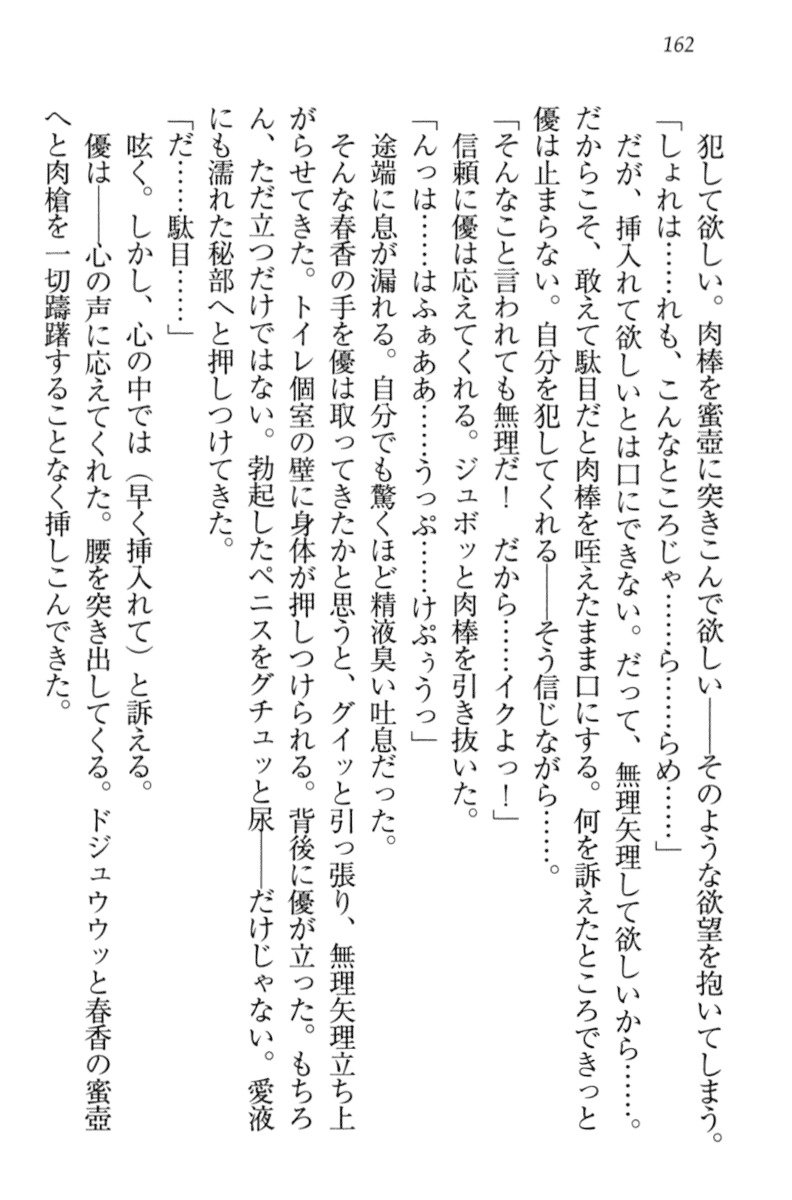 162
犯して欲しい。肉棒を蜜壺に突きこんで欲しい――そのような欲望を抱いてしまう。
「しょれは……れも、こんなところじゃ……ら……らめ……」
だが、挿入れて欲しいとは口にできない。だって、無理矢理して欲しいから……。
だからこそ、敢えて駄目だと肉棒を咥えたまま口にする。何を訴えたところできっと
優は止まらない。自分を犯してくれる――そう信じながら……。
「そんなこと言われても無理だ！　だから……イクよっ！」
信頼に優は応えてくれる。ジュボッと肉棒を引き抜いた。
「んっは……はふぁああ……うっぷ……けぷぅうっ」
途端に息が漏れる。自分でも驚くほど精液臭い吐息だった。
そんな春香の手を優は取ってきたかと思うと、グイッと引っ張り、無理矢理立ち上
がらせてきた。トイレ個室の壁に身体が押しつけられる。背後に優が立った。もちろ
ん、ただ立つだけではない。勃起したペニスをグチュッと尿――だけじゃない。愛液
にも濡れた秘部へと押しつけてきた。
「だ……駄目……」
呟く。しかし、心の中では（早く挿入れて）と訴える。
優は――心の声に応えてくれた。腰を突き出してくる。ドジュウウッと春香の蜜壺
へと肉槍を一切躊躇することなく挿しこんできた。